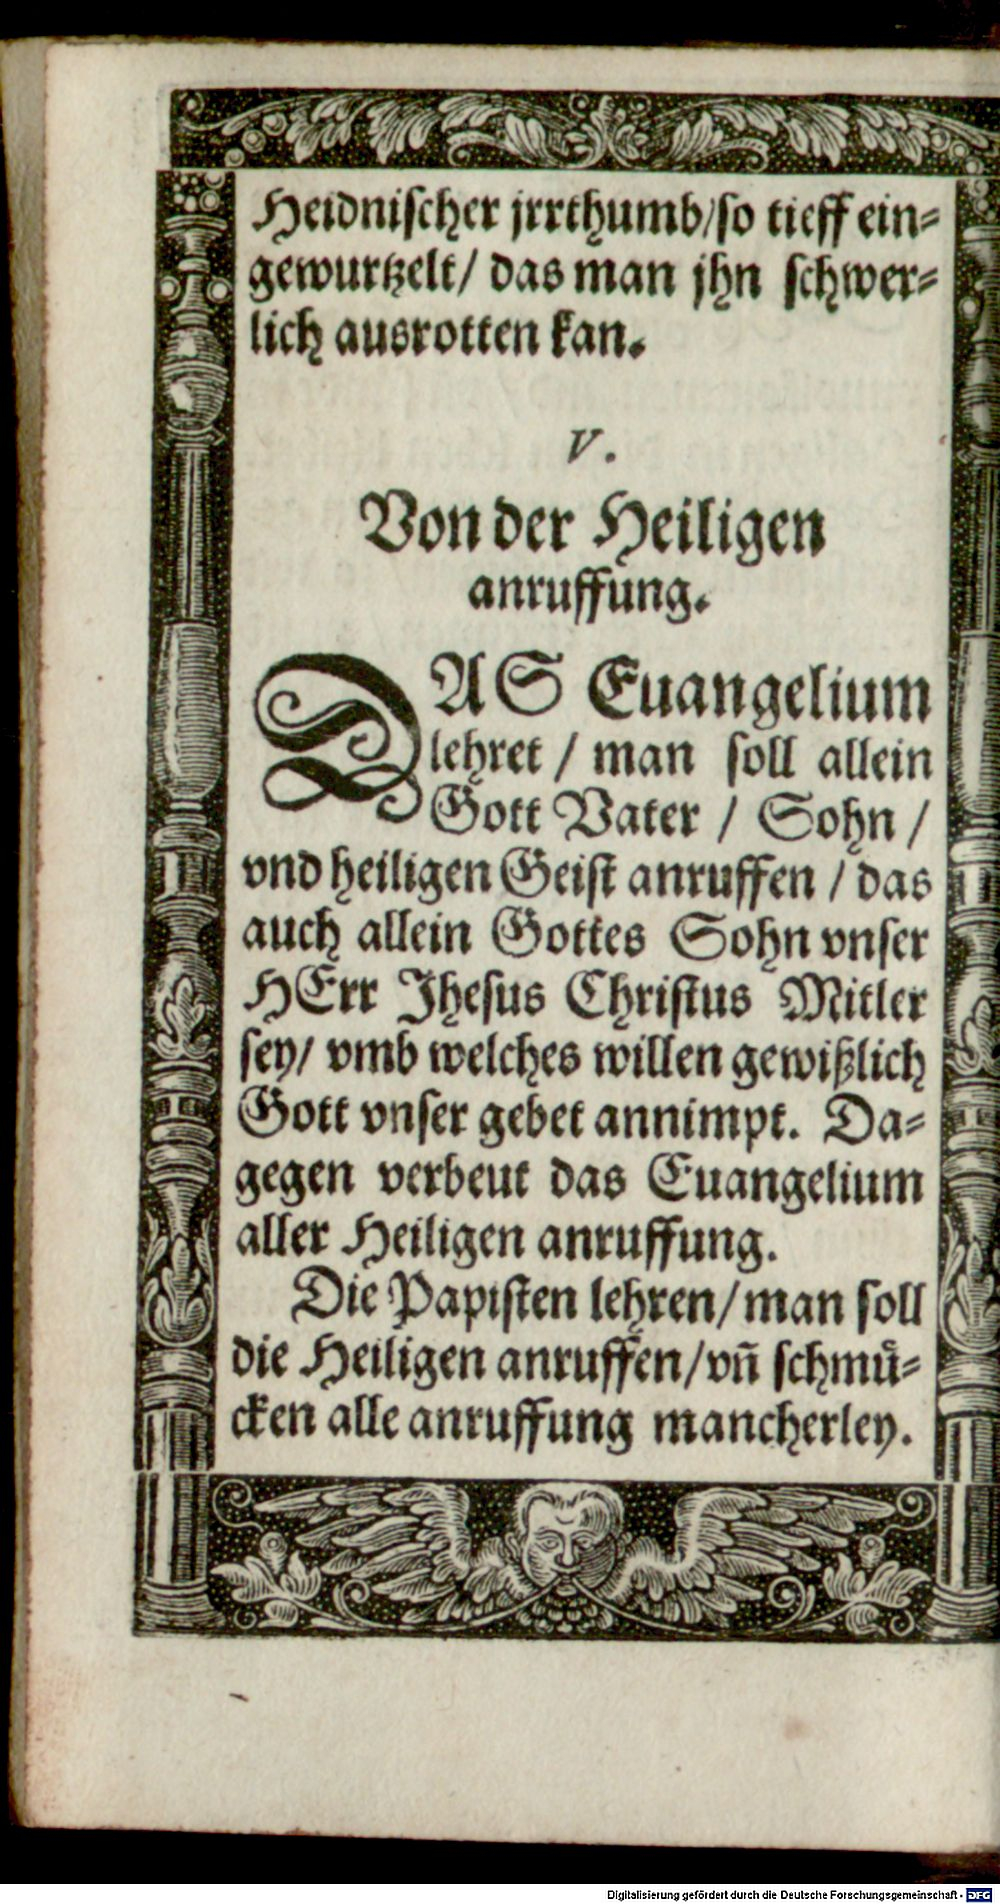 Heidnischer jrrthumb/so tieff ein⸗
gewurtzelt/ das man jhn schwer⸗
lich ausrotten kan.
V.
Von der Heiligen
anruffung.
DAS Euangelium
lehret / man soll allein
Gott Vater / Sohn /
vnd heiligen Geist anruffen / das
auch allein Gottes Sohn vnser
HErr Jhesus Christus Mitler
sey/ vmb welches willen gewißlich
Gott vnser gebet annimpt. Da⸗
gegen verbeut das Euangelium
aller Heiligen anruffung.
Die Papisten lehren/man soll
die Heiligen anruffen/vn̄ schmuͤ⸗
cken alle anruffung mancherley.
Digitalisierung gefördert durch die Deutsche Forschungsgemeinschaft - DFG